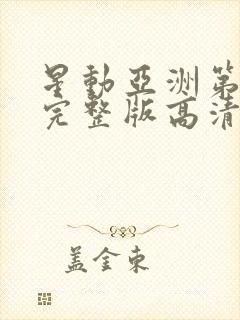 星動亞洲第
完整版高清
蓋金東